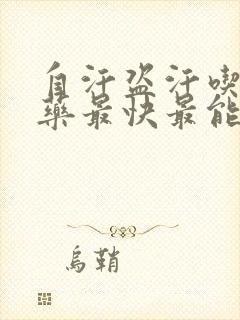 自汗盗汗喫
藥最快最能
烏鞘